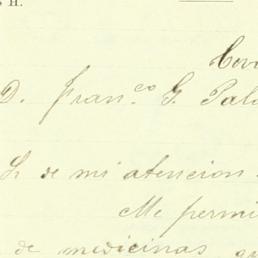 H.
D. Fran.co G.
de mi atencion
Me permi
de medicinas